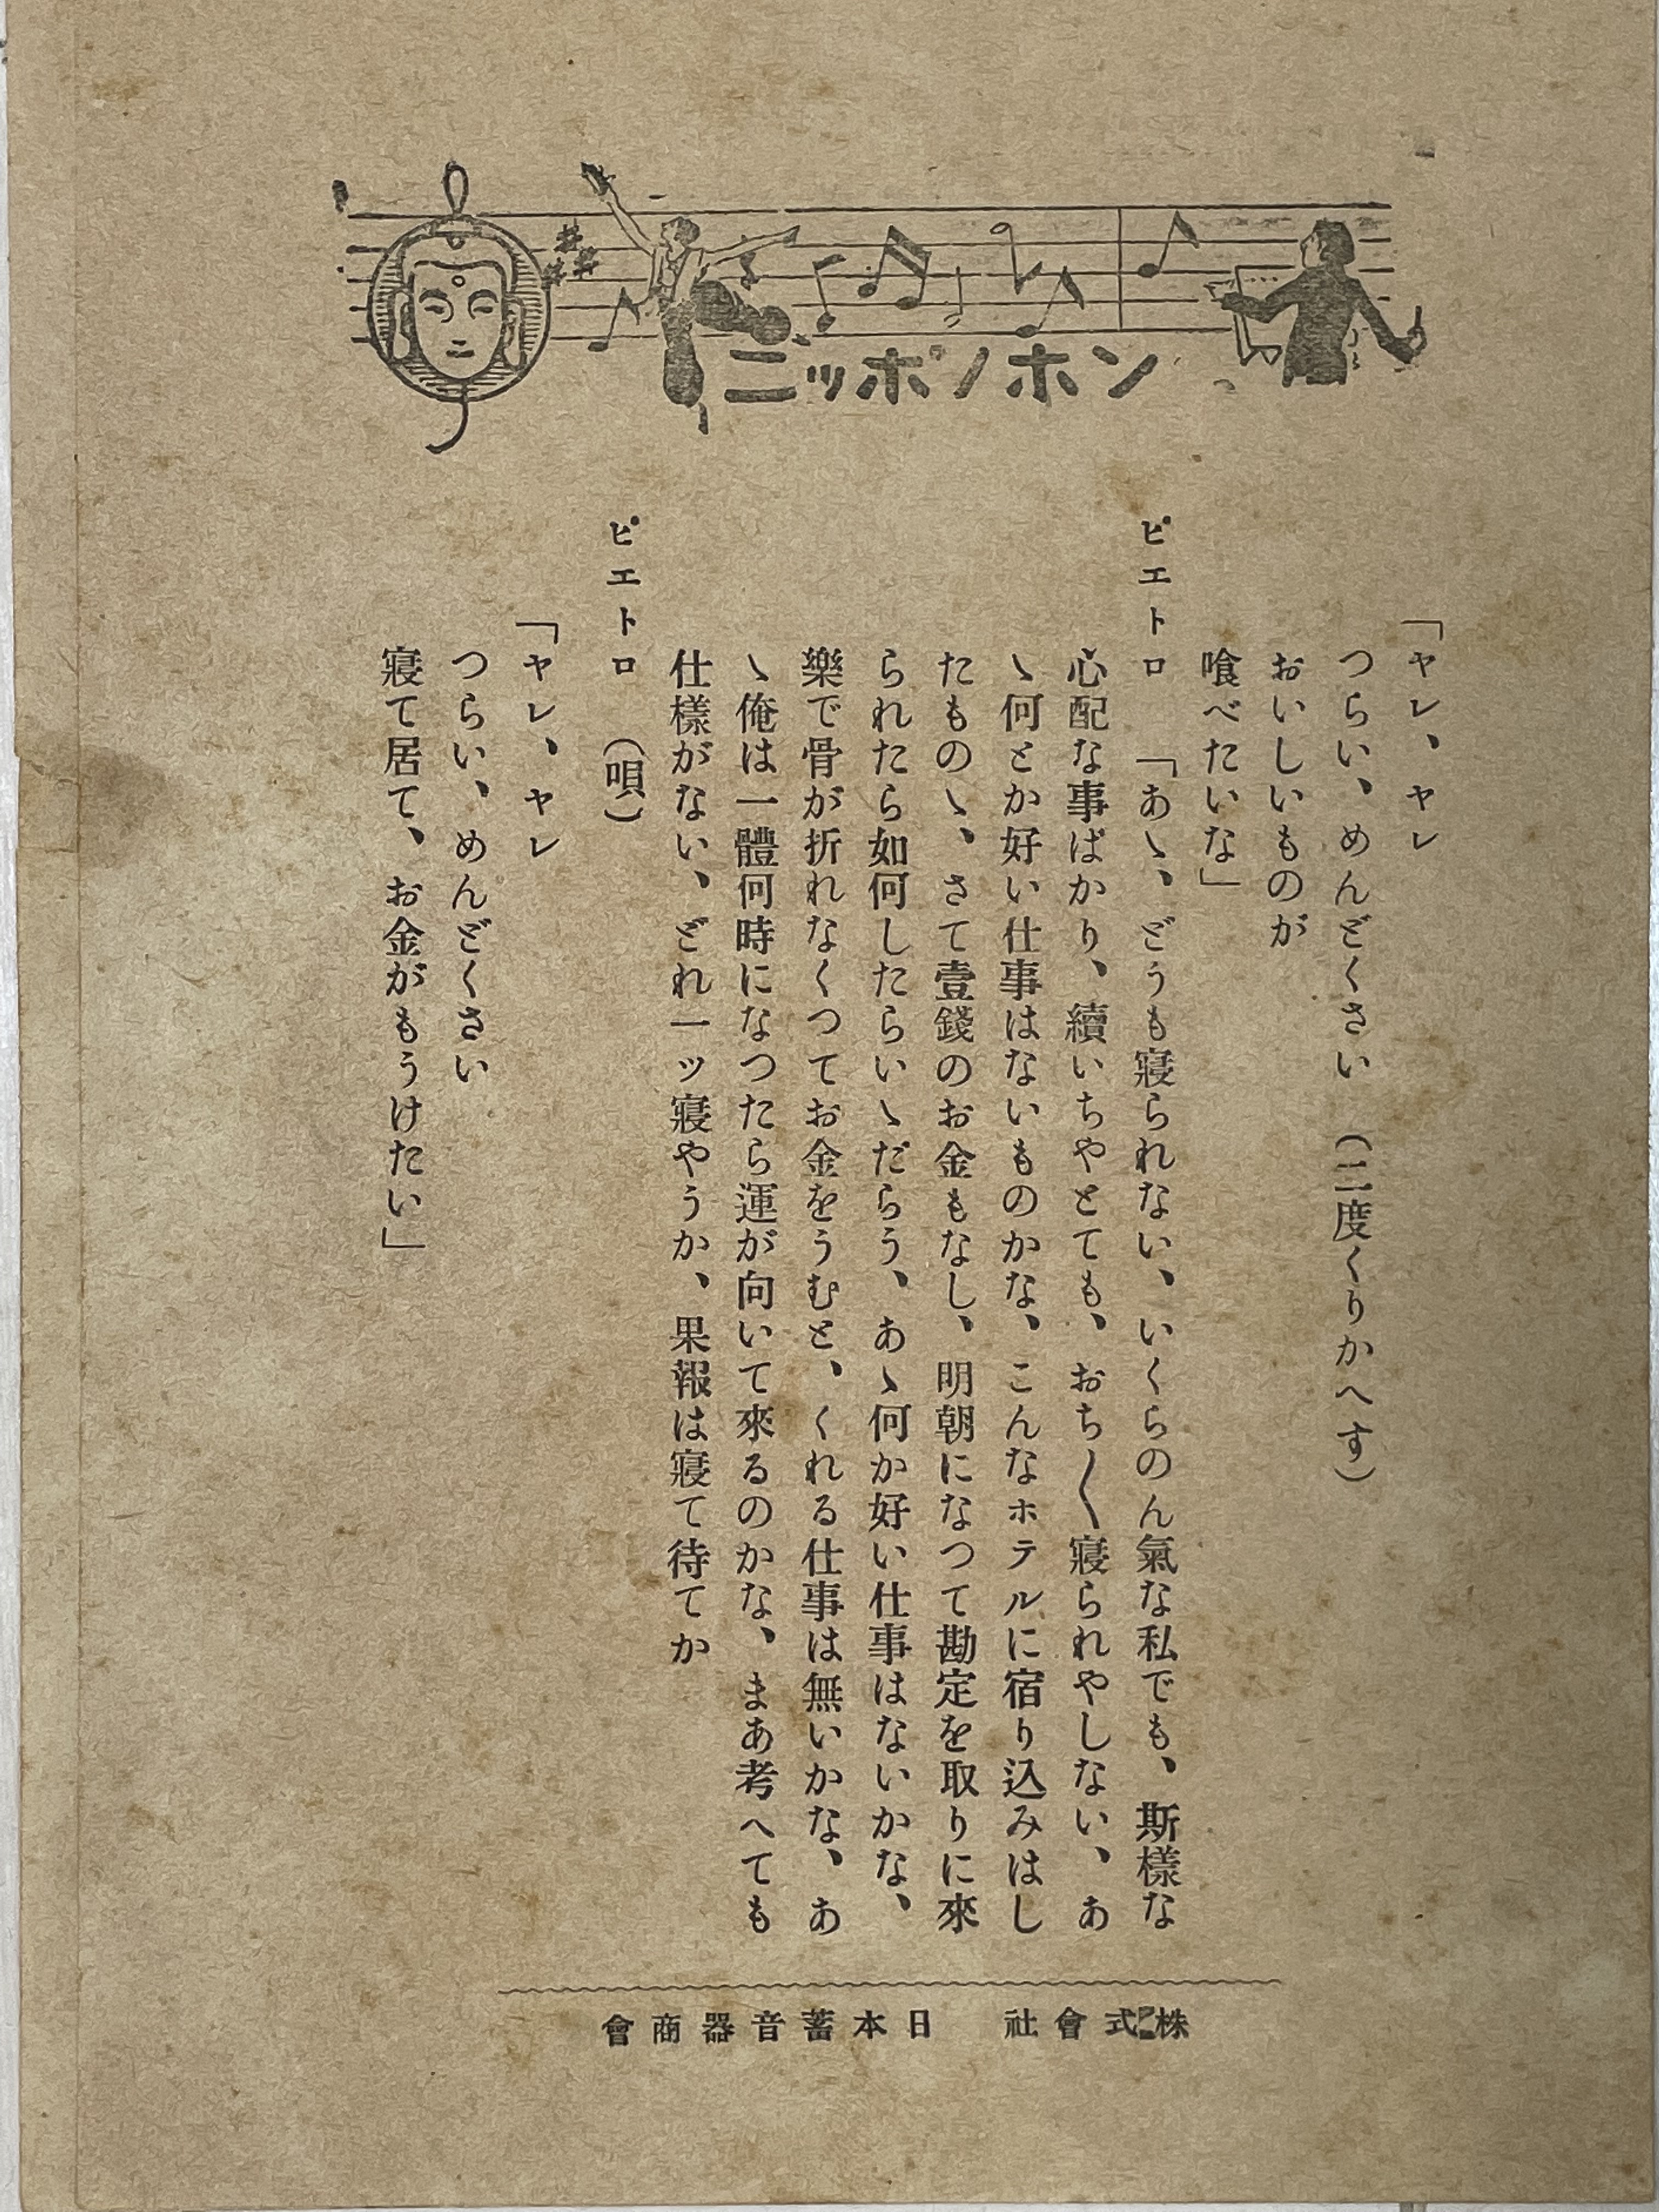 ニッポノホン
「ヤレ、ヤレ
つらい、めんどくさい　（二度くりかへす）
おいしいものが
喰べたいな」
ピエトロ　「あゝ、どうも寢られない、いくらのん氣な私でも、斯樣な
心配な事ばかり、續いちやとても、おち〳〵寢られやしない、あ
ゝ何とか好い仕事はないものかな、こんなホテルに宿り込みはし
たものゝ、さて壹錢のお金もなし、明朝になつて勘定を取りに來
られたら如何したらいゝだらう、あゝ何か好い仕事はないかな、
樂で骨が折れなくつてお金をうむと、くれる仕事は無いかな、あ
ゝ俺は一體何時になつたら運が向いて來るのかな、まあ考へても
仕樣がない、どれ一ッ寢やうか、果報は寢て待てか
ピエトロ　（唄）
「ヤレ、ヤレ
つらい、めんどくさい
寢て居て、お金がもうけたい」
株式會社　日本蓄音器商會